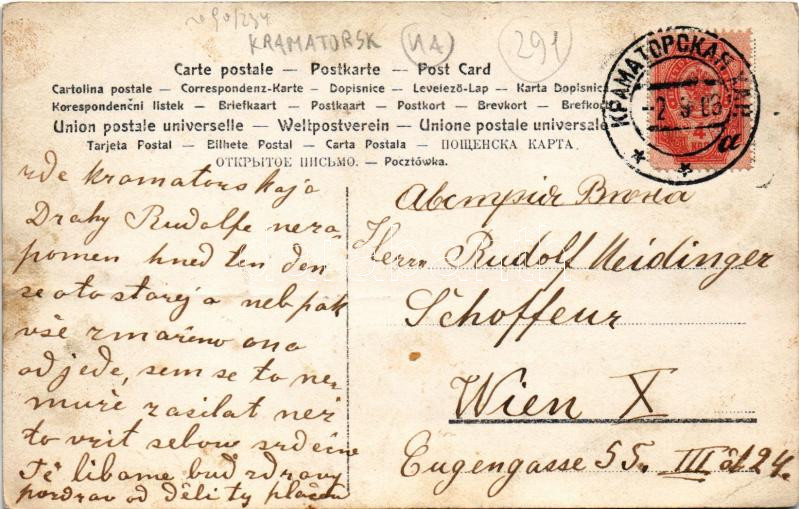 KRAMATORSK
UA
291
Carte postale — Postkarte — Post Card
Cartolina postale — Correspondenz-Karte — Dopisnice — Levelező-Lap — Karta Dopisnica
Korespondenční listek — Briefkaart — Postkaart — Postkort — Brevkort — Brefkort
Union postale universelle — Weltpostverein — Unione postale universale
Tarjeta Postal — Bilhete Postal — Carta Postala — ПОЩЕНСКА КАРТА.
ОТКРЫТОЕ ПИСЬМО. — Pocztówka.
КРАМАТОРСКАЯ
a
zde Kramatorskaja
Drahy Rudolfe neza-
pomen hned ten den
se oto starej a neb pak
vše zmařeno ona
odjede, sem se to ne-
muže zasilat než
to vzit sebou srdečne
Tě libame buď zdravy
pozdrav od děti ty
Австрія Вѣна
Herrn Rudolf Neidinger
Schoffeur
Wien X
Eugengasse 55. III 24.